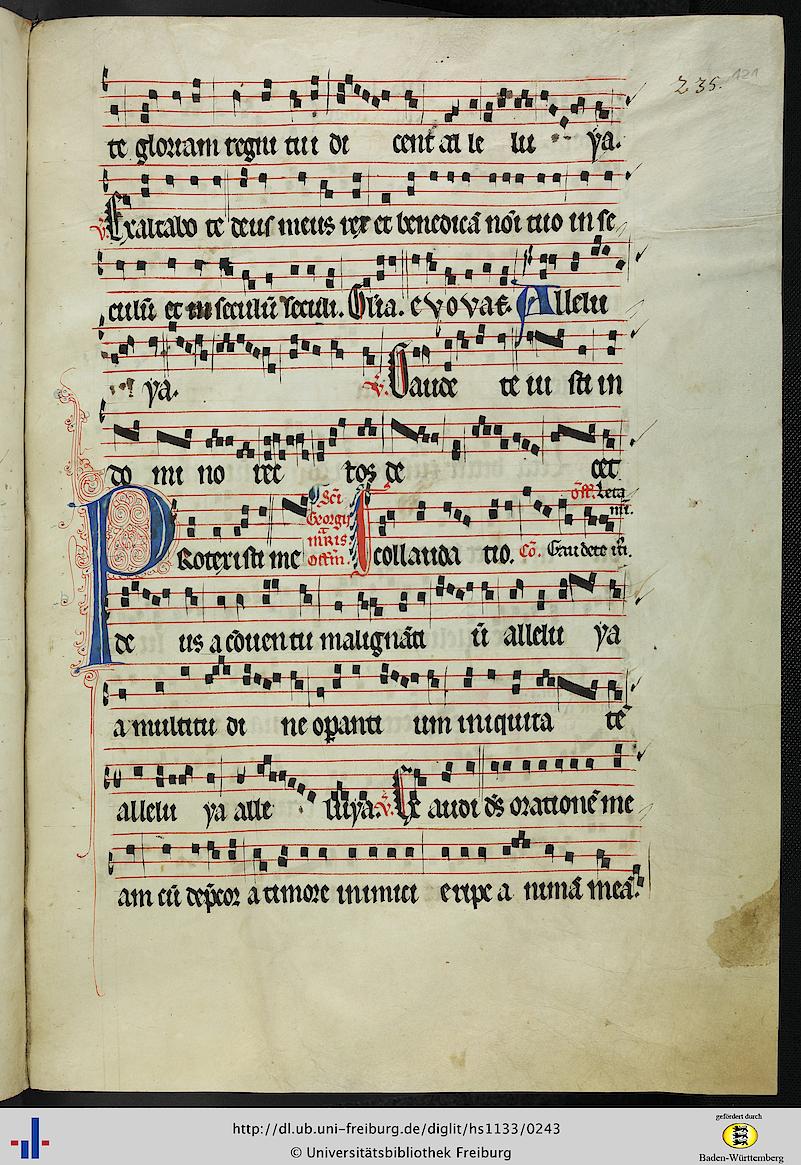 235. 121
te gloriam regni tui di cent al le lu ya.
v̄. Exaltabo te deus meus rex et benedicā noī tuo in se
culū et in seculū seculi. Glīa. e v o v a e. Allelu
ya. v̄. Gaude te iu sti in
do mi no rec tos de cet
Scī Georgij mr̄is Offm̄. off. Leta mī.
Rotexisti me I collauda tio. Cō. Gaudete iti.
P de us a cōuentu malignāti ū allelu ya
a multitu di ne opanti um iniquita tē
allelu ya alle luya. v̄. Ex audi ds̄ orationē me
am cū dep̄cor a timore inimici eripe a nimā meā.
http://dl.ub.uni-freiburg.de/diglit/hs1133/0243
© Universitätsbibliothek Freiburg
gefördert durch
Baden-Württemberg